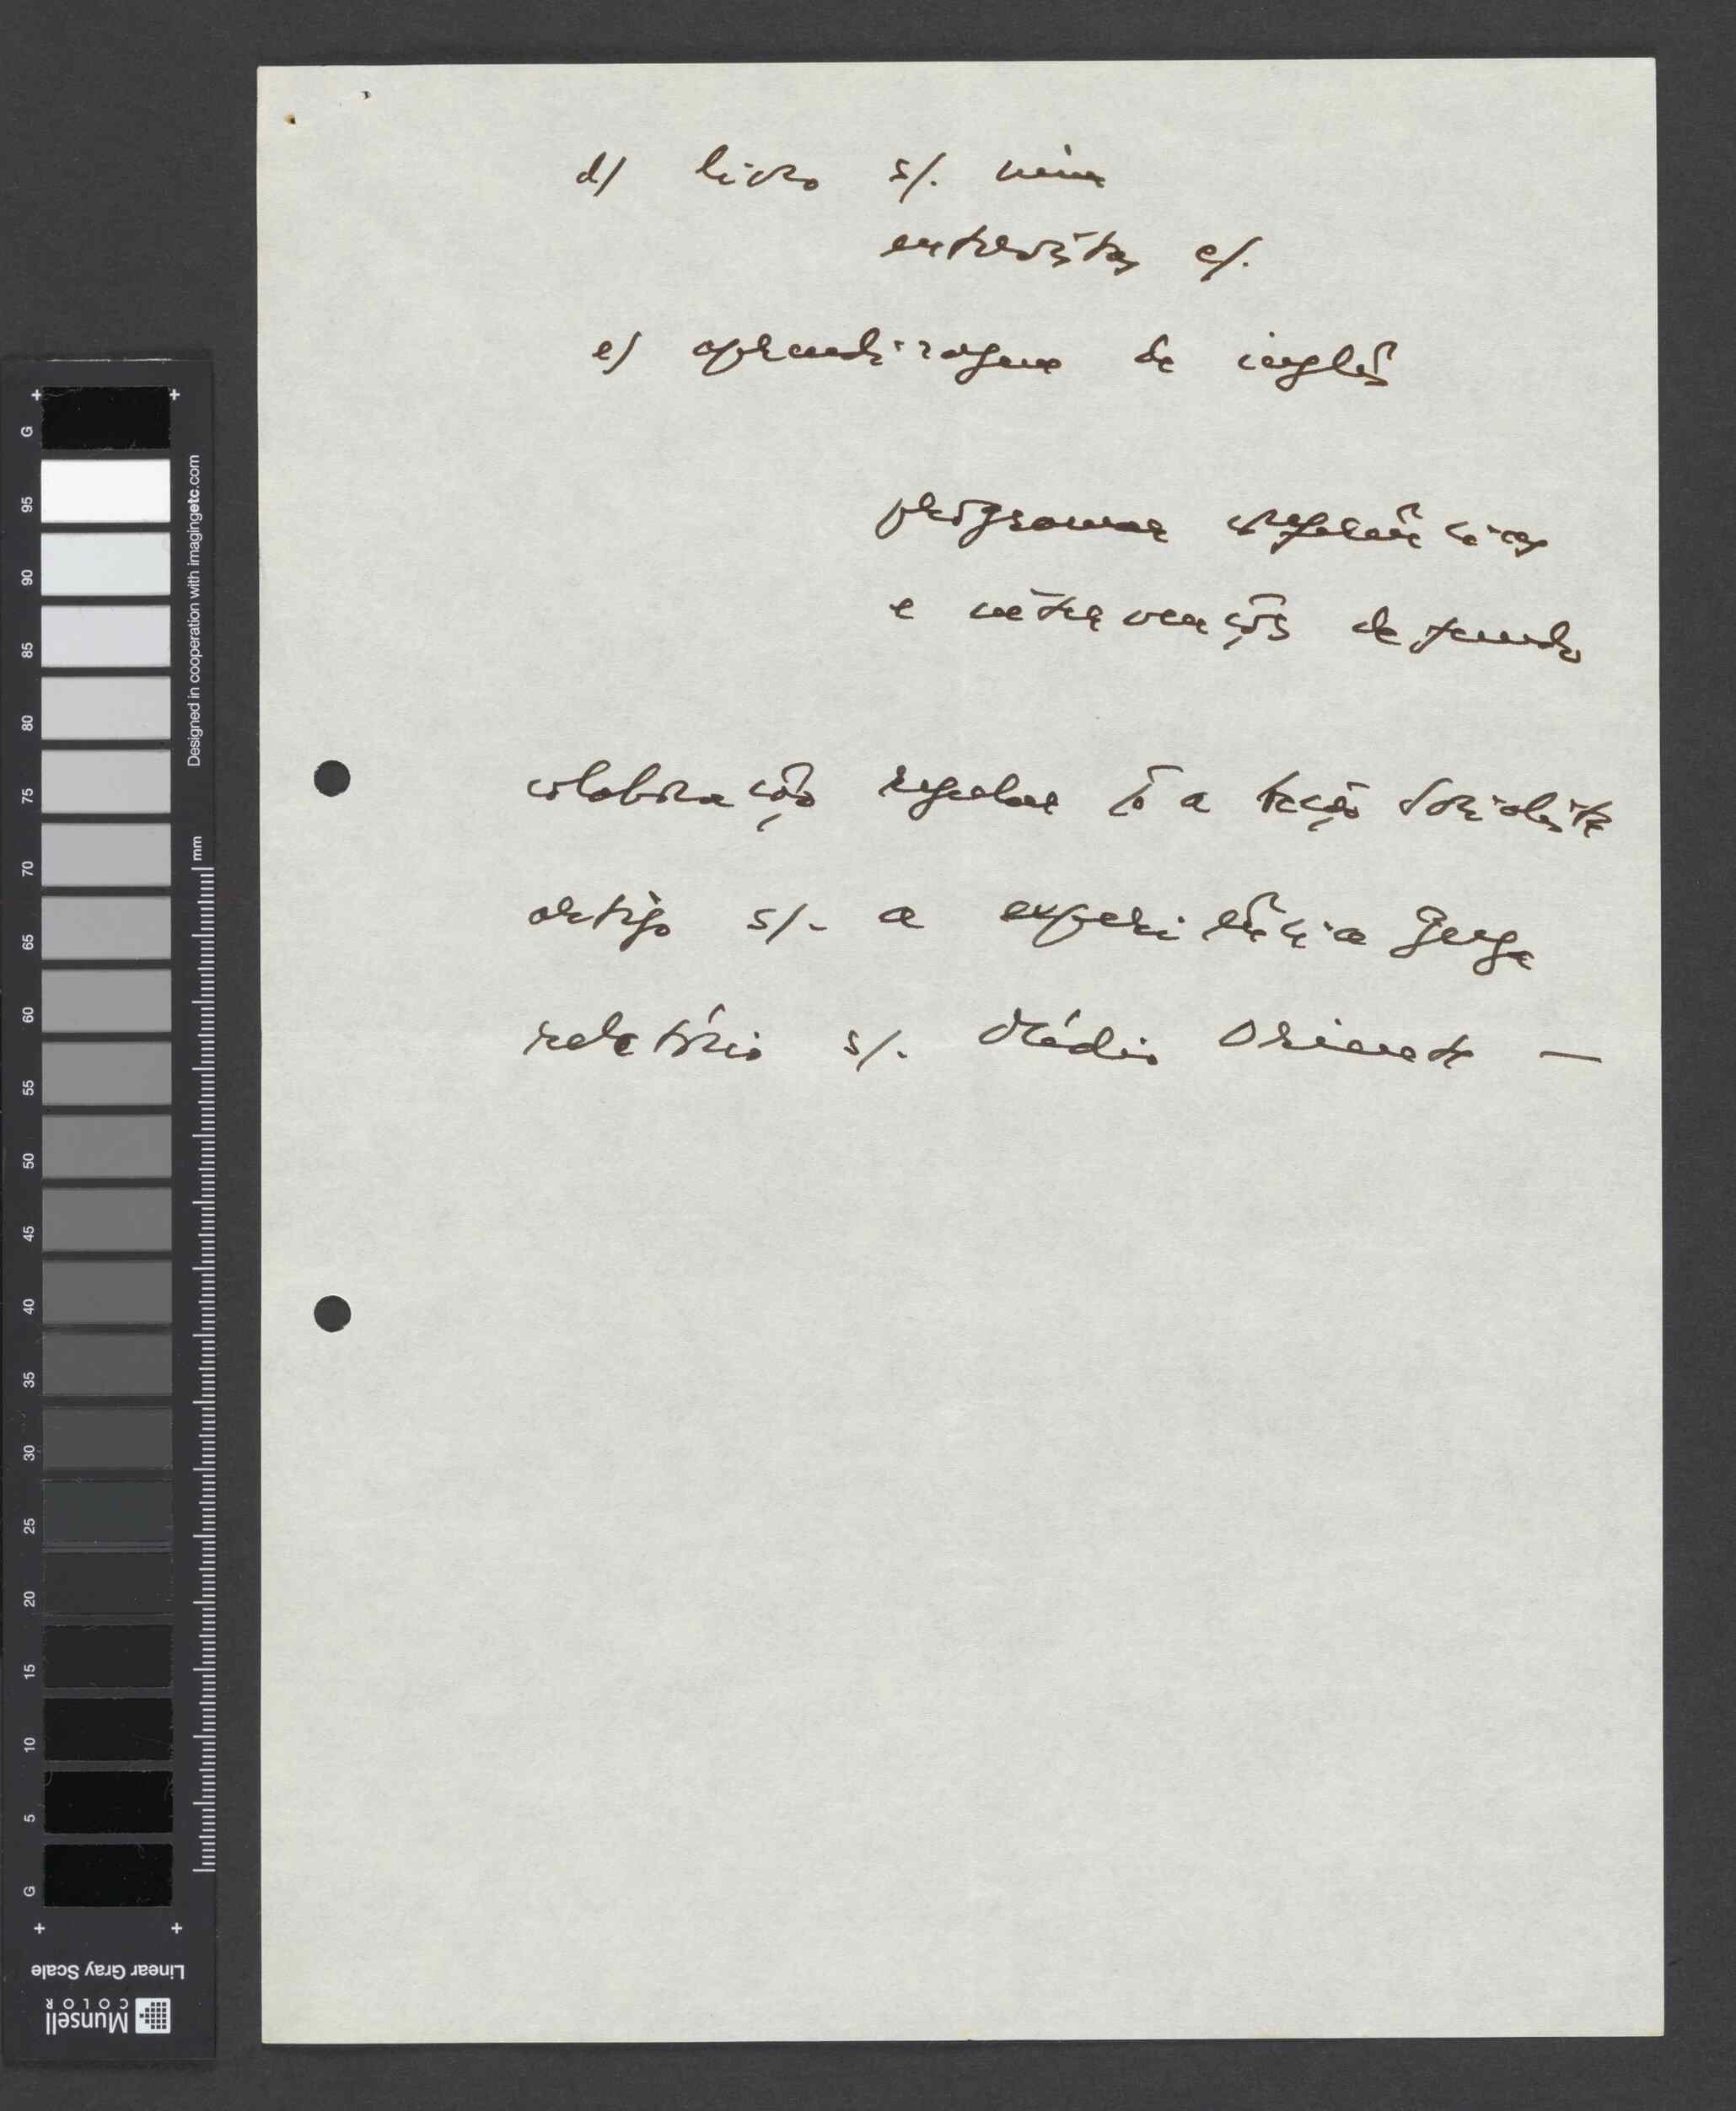 d) livro s/. mim
entrevistas c/.
e) aprendizagem de inglês
programar conferências
e intervenções de fundo
colaboração regular p.ª a Acção Socialista
artigo s/. a experiência grega
relatório s/. Médio Oriente —
G
95
90
85
80
75
70
65
60
55
50
45
40
35
30
25
20
15
10
5
G
mm
Designed in cooperation with imagingetc.com
Linear Gray Scale
Munsell
COLOR